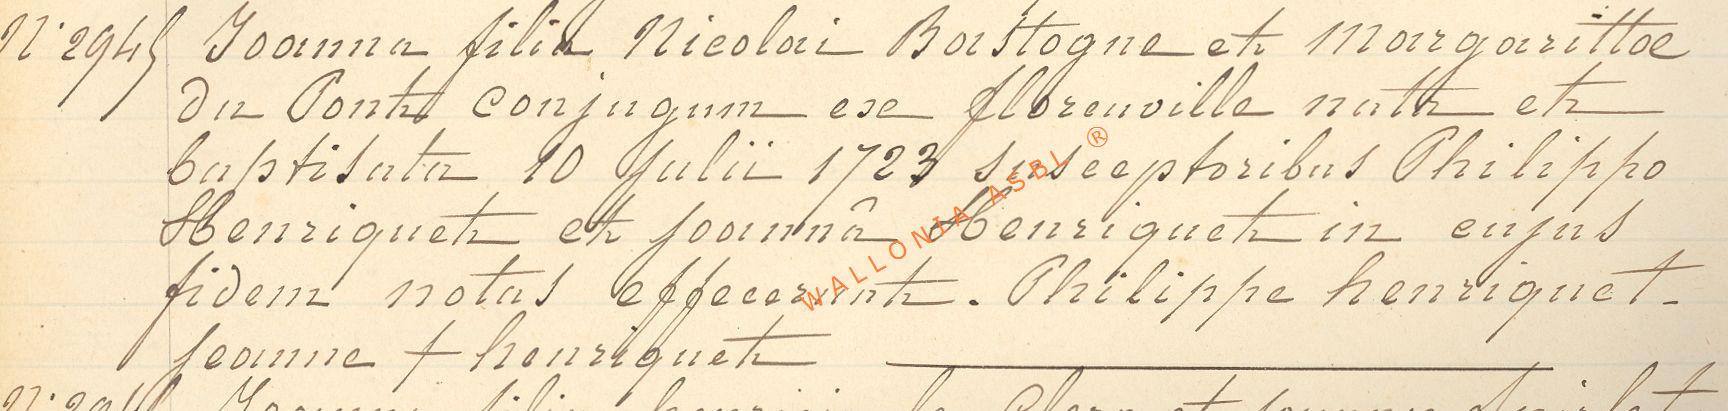 N° 2945 Joanna filia Nicolai Bastogne et Margarittae
du Pont conjugum ex florenville nata et
baptisata 10 Julii 1723 susceptoribus Philippo
Henriquet et joannâ Henriquet in cujus
fidem notas effecerunt. Philippe henriquet.
jeanne + henriquet
WALLONIA ASBL ®